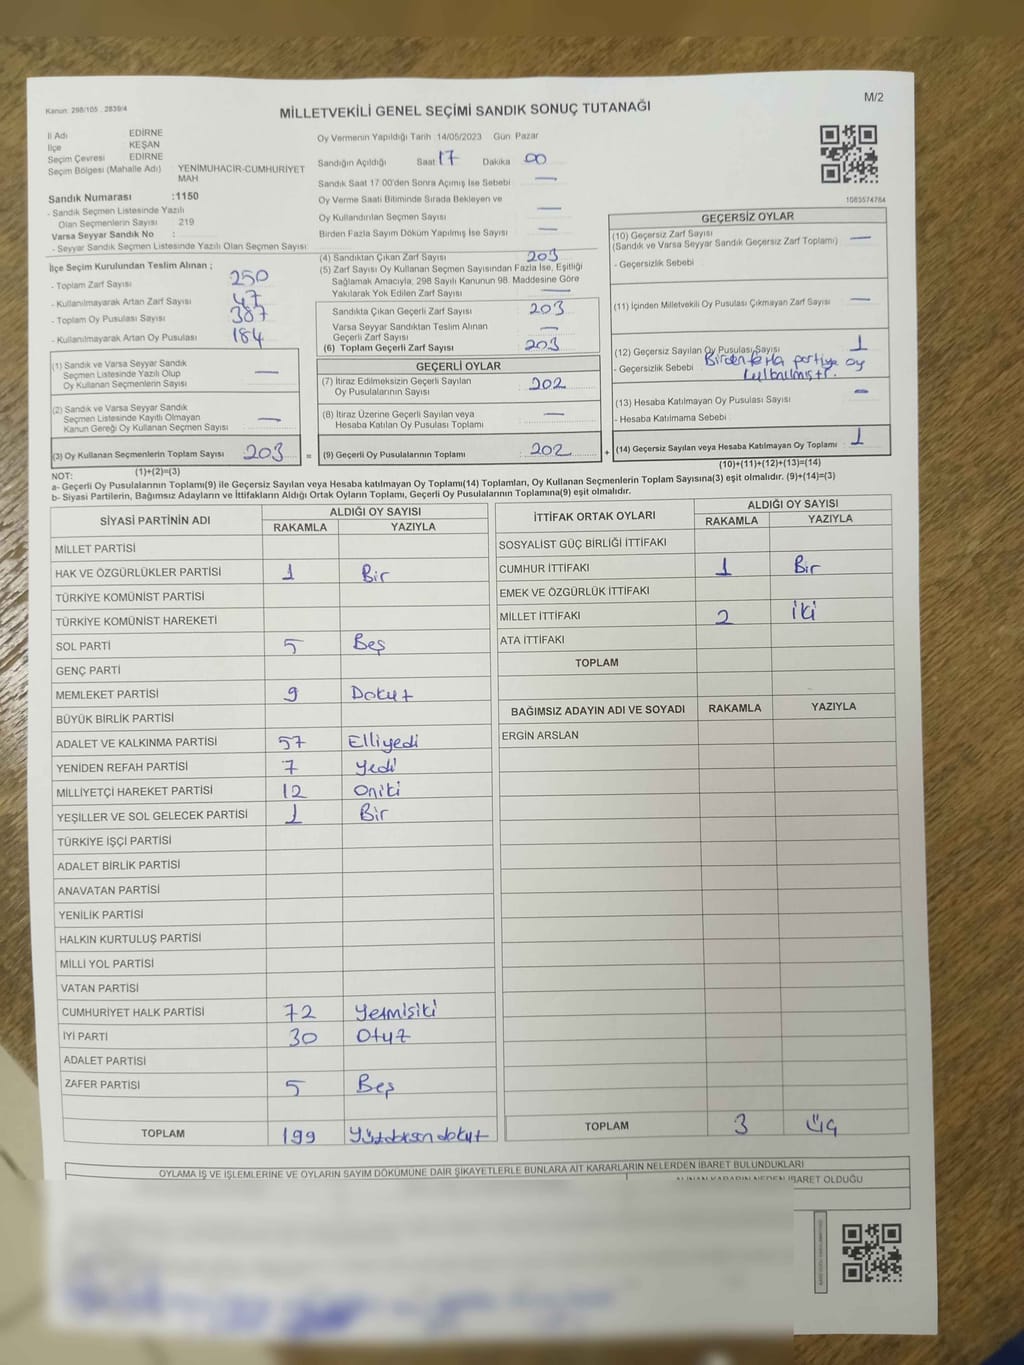 Kanun: 298/105 . 2839/4
M/2
MİLLETVEKİLİ GENEL SEÇİMİ SANDIK SONUÇ TUTANAĞI
İl Adı EDİRNE
İlçe KEŞAN
Seçim Çevresi EDİRNE
Seçim Bölgesi (Mahalle Adı) YENİMUHACİR-CUMHURİYET MAH
Sandık Numarası :1150
- Sandık Seçmen Listesinde Yazılı
Olan Seçmenlerin Sayısı 219
Varsa Seyyar Sandık No :
- Seyyar Sandık Seçmen Listesinde Yazılı Olan Seçmen Sayısı:
Oy Vermenin Yapıldığı Tarih 14/05/2023 Gün Pazar
Sandığın Açıldığı Saat 17 Dakika 00
Sandık Saat 17 00'den Sonra Açımış İse Sebebi —
Oy Verme Saati Bitiminde Sırada Bekleyen ve
Oy Kullandırılan Seçmen Sayısı —
Birden Fazla Sayım Döküm Yapılmış İse Sayısı —
1083574784
İlçe Seçim Kurulundan Teslim Alınan ;
- Toplam Zarf Sayısı 250
- Kullanılmayarak Artan Zarf Sayısı 47
- Toplam Oy Pusulası Sayısı 387
- Kullanılmayarak Artan Oy Pusulası 184
(1) Sandık ve Varsa Seyyar Sandık
Seçmen Listesinde Yazılı Olup
Oy Kullanan Seçmenlerin Sayısı —
(2) Sandık ve Varsa Seyyar Sandık
Seçmen Listesinde Kayıtlı Olmayan
Kanun Gereği Oy Kullanan Seçmen Sayısı —
(3) Oy Kullanan Seçmenlerin Toplam Sayısı 203 =
(1)+(2)=(3)
(4) Sandıktan Çıkan Zarf Sayısı 203
(5) Zarf Sayısı Oy Kullanan Seçmen Sayısından Fazla İse, Eşitliği
Sağlamak Amacıyla; 298 Sayılı Kanunun 98. Maddesine Göre
Yakılarak Yok Edilen Zarf Sayısı —
Sandıkta Çıkan Geçerli Zarf Sayısı 203
Varsa Seyyar Sandıktan Teslim Alınan
Geçerli Zarf Sayısı —
(6) Toplam Geçerli Zarf Sayısı 203
GEÇERLİ OYLAR
(7) İtiraz Edilmeksizin Geçerli Sayılan
Oy Pusulalarının Sayısı 202
(8) İtiraz Üzerine Geçerli Sayılan veya
Hesaba Katılan Oy Pusulası Toplamı —
(9) Geçerli Oy Pusulalarının Toplamı 202 +
GEÇERSİZ OYLAR
(10) Geçersiz Zarf Sayısı
(Sandık ve Varsa Seyyar Sandık Geçersiz Zarf Toplamı) —
- Geçersizlik Sebebi
(11) İçinden Milletvekili Oy Pusulası Çıkmayan Zarf Sayısı —
(12) Geçersiz Sayılan Oy Pusulası Sayısı 1
- Geçersizlik Sebebi Birden fazla partiye oy
kullanılmıştır.
(13) Hesaba Katılmayan Oy Pusulası Sayısı —
- Hesaba Katılmama Sebebi
(14) Geçersiz Sayılan veya Hesaba Katılmayan Oy Toplamı 1
(10)+(11)+(12)+(13)=(14)
NOT:
a- Geçerli Oy Pusulasının Toplamı(9) ile Geçersiz Sayılan veya Hesaba katılmayan Oy Toplamı(14) Toplamları, Oy Kullanan Seçmenlerin Toplam Sayısına(3) eşit olmalıdır. (9)+(14)=(3)
b- Siyasi Partilerin, Bağımsız Adayların ve İttifakların Aldığı Ortak Oyların Toplamı, Geçerli Oy Pusulalarının Toplamına(9) eşit olmalıdır.
SİYASİ PARTİNİN ADI ALDIĞI OY SAYISI
RAKAMLA YAZIYLA
MİLLET PARTİSİ
HAK VE ÖZGÜRLÜKLER PARTİSİ 1 Bir
TÜRKİYE KOMÜNİST PARTİSİ
TÜRKİYE KOMÜNİST HAREKETİ
SOL PARTİ 5 Beş
GENÇ PARTİ
MEMLEKET PARTİSİ 9 Dokuz
BÜYÜK BİRLİK PARTİSİ
ADALET VE KALKINMA PARTİSİ 57 Elliyedi
YENİDEN REFAH PARTİSİ 7 Yedi
MİLLİYETÇİ HAREKET PARTİSİ 12 Oniki
YEŞİLLER VE SOL GELECEK PARTİSİ 1 Bir
TÜRKİYE İŞÇİ PARTİSİ
ADALET BİRLİK PARTİSİ
ANAVATAN PARTİSİ
YENİLİK PARTİSİ
HALKIN KURTULUŞ PARTİSİ
MİLLİ YOL PARTİSİ
VATAN PARTİSİ
CUMHURİYET HALK PARTİSİ 72 Yetmişiki
İYİ PARTİ 30 Otuz
ADALET PARTİSİ
ZAFER PARTİSİ 5 Beş
TOPLAM 199 Yüzdoksandokuz
İTTİFAK ORTAK OYLARI ALDIĞI OY SAYISI
RAKAMLA YAZIYLA
SOSYALİST GÜÇ BİRLİĞİ İTTİFAKI
CUMHUR İTTİFAKI 1 Bir
EMEK VE ÖZGÜRLÜK İTTİFAKI
MİLLET İTTİFAKI 2 İki
ATA İTTİFAKI
TOPLAM
BAĞIMSIZ ADAYIN ADI VE SOYADI RAKAMLA YAZIYLA
ERGİN ARSLAN
TOPLAM 3 Üç
OYLAMA İŞ VE İŞLEMLERİNE VE OYLARIN SAYIM DÖKÜMÜNE DAİR ŞİKAYETLERLE BUNLARA AİT KARARLARIN NELERDEN İBARET BULUNDUKLARI
ALINAN KARARIN NEDEN İBARET OLDUĞU